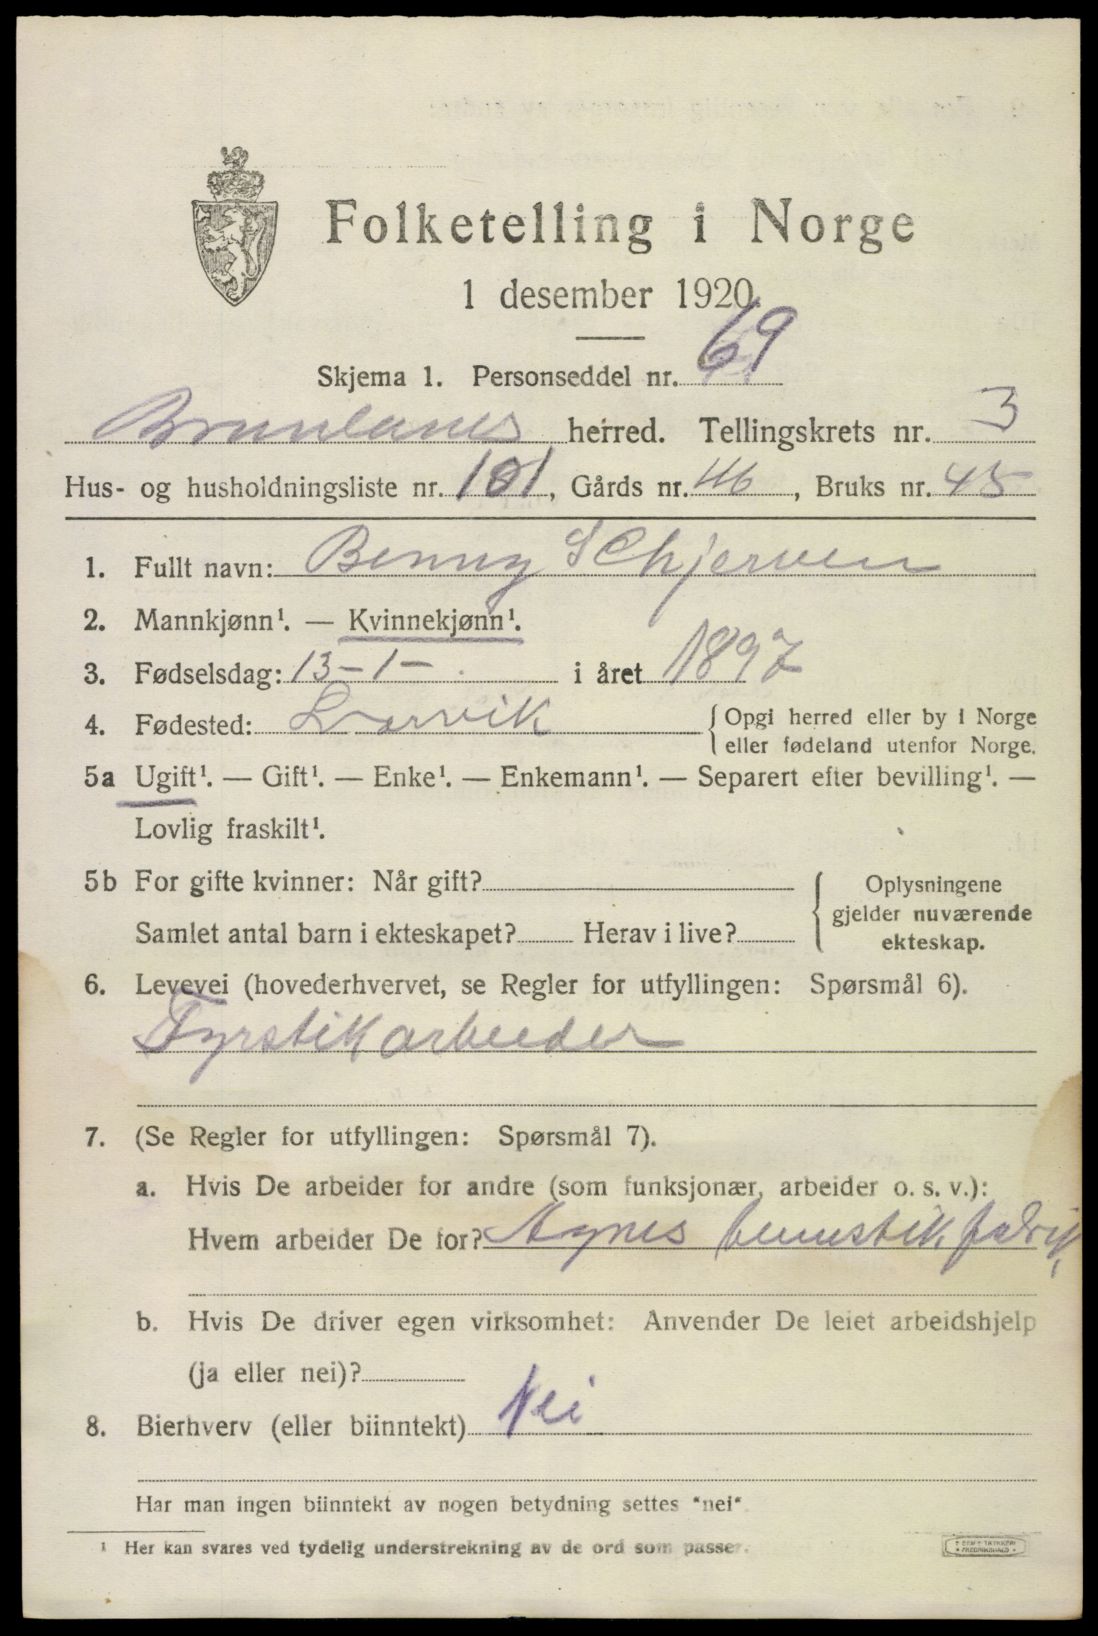 Folketelling i Norge
1 desember 1920.
Skjema 1. Personseddel nr. 69
Brunlanes herred. Tellingskrets nr. 3
Hus- og husholdningsliste nr. 101, Gårds nr. 46, Bruks nr. 45
1. Fullt navn: Benny Schjerven
2. Mannkjønn¹. — Kvinnekjønn¹.
3. Fødselsdag: 13-1- i året 1897
4. Fødested: Larvik { Opgi herred eller by i Norge
eller fødeland utenfor Norge.
5a Ugift¹. — Gift¹. — Enke¹. — Enkemann¹. — Separert efter bevilling¹. —
Lovlig fraskilt¹.
5b For gifte kvinner: Når gift? { Oplysningene
gjelder nuværende
ekteskap.
Samlet antal barn i ekteskapet? Herav i live?
6. Levevei (hovederhvervet, se Regler for utfyllingen: Spørsmål 6).
Fyrstikarbeider
7. (Se Regler for utfyllingen: Spørsmål 7).
a. Hvis De arbeider for andre (som funksjonær, arbeider o. s. v.):
Hvem arbeider De for? Agnes fyrstikfabrik
b. Hvis De driver egen virksomhet: Anvender De leiet arbeidshjelp
(ja eller nei)?
8. Bierhverv (eller biinntekt) Nei
Har man ingen biinntekt av nogen betydning settes "nei"
¹ Her kan svares ved tydelig understrekning av de ord som passer.